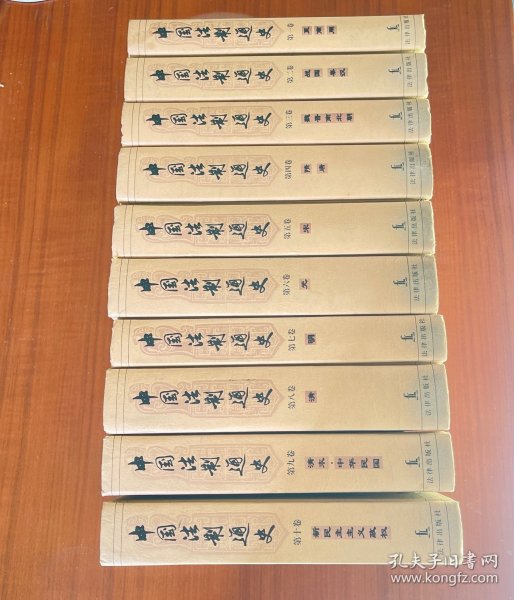 中国法制通史 第一卷 夏商周 法律出版社
中国法制通史 第二卷 战国 秦汉 法律出版社
中国法制通史 第三卷 魏晋南北朝 法律出版社
中国法制通史 第四卷 隋唐 法律出版社
中国法制通史 第五卷 宋 法律出版社
中国法制通史 第六卷 元 法律出版社
中国法制通史 第七卷 明 法律出版社
中国法制通史 第八卷 清 法律出版社
中国法制通史 第九卷 清末·中华民国 法律出版社
中国法制通史 第十卷 新民主主义政权 法律出版社
孔夫子旧书网
www.kongfz.com